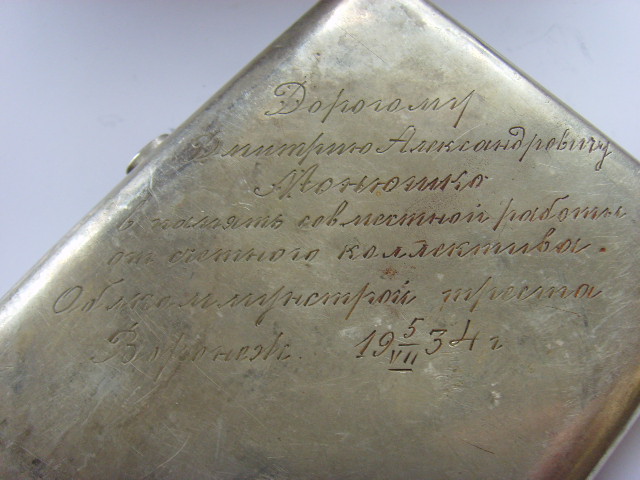 Дорогому
Дмитрию Александровичу
Монюшко
в память совместной работы
от счетного коллектива.
Облкоммунстрой треста
Воронеж. 19 5/VII 34 г